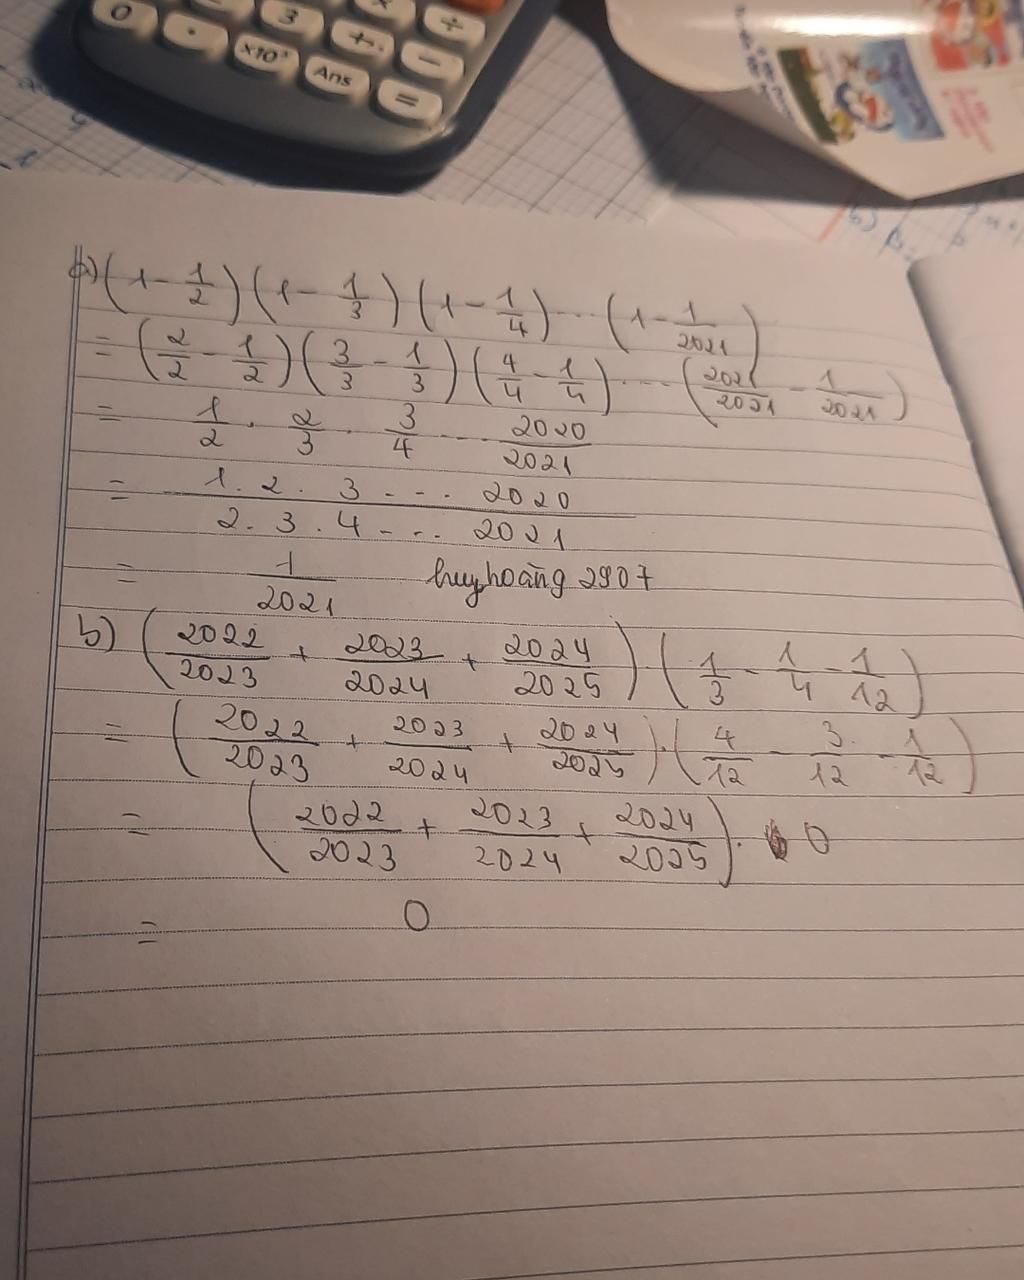 0 · 3 × ÷
×10ˣ +. −
Ans =
a) (1 - 1/2) (1 - 1/3) (1 - 1/4) ... (1 - 1/2021)
= (2/2 - 1/2) (3/3 - 1/3) (4/4 - 1/4) .... (2021/2021 - 1/2021)
= 1/2 . 2/3 . 3/4 ... 2020/2021
= 1. 2. 3 ... 2020 / 2. 3. 4 ... 2021
= 1/2021 huyhoàng 2907
b) (2022/2023 + 2023/2024 + 2024/2025) . (1/3 - 1/4 - 1/12)
= (2022/2023 + 2023/2024 + 2024/2025) . (4/12 - 3/12 - 1/12)
= (2022/2023 + 2023/2024 + 2024/2025) . 0
= 0